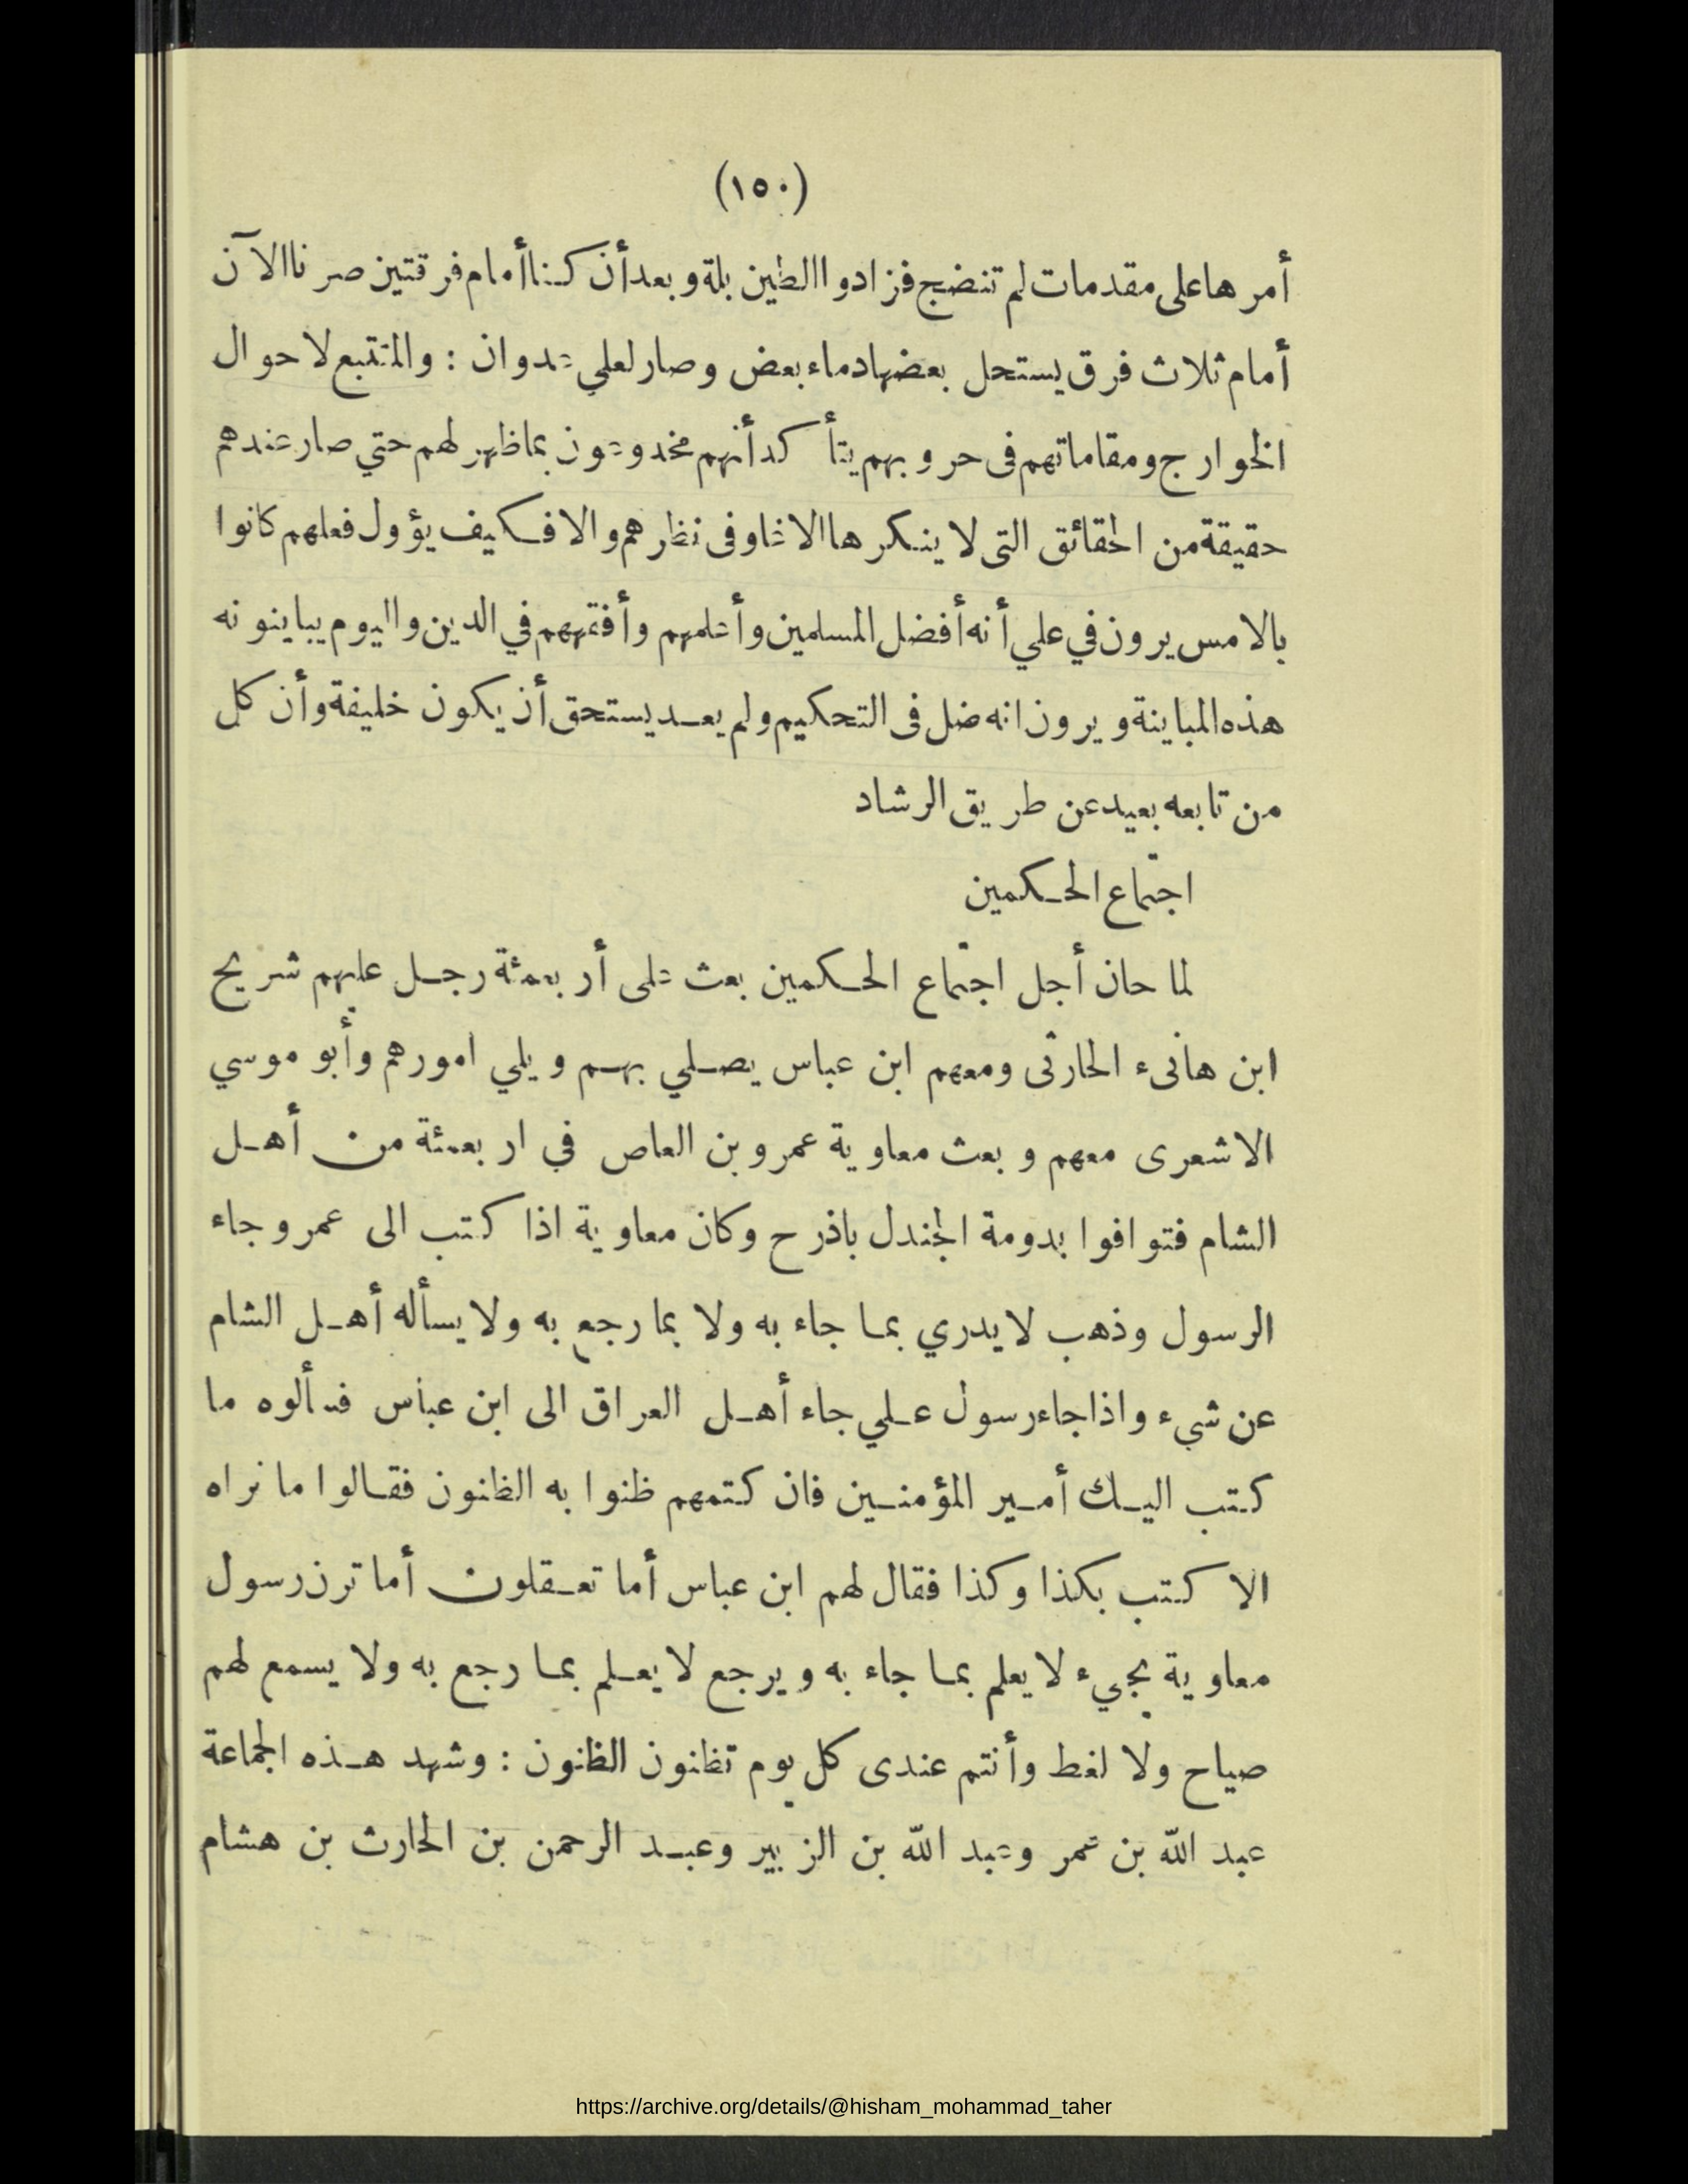 (١٥٠)
أمرها على مقدمات لم تنضج فزادوا الطين بلة وبعد أن كنا أمام فرقتين صرنا الآن
أمام ثلاث فرق يستحل بعضها دماء بعض وصار لعلي عدوان : والمتتبع لاحوال
الخوارج ومقاماتهم فى حروبهم يتأكد أنهم مخدوعون بما ظهر لهم حتي صار عندهم
حقيقة من الحقائق التى لا ينكرها الا غاو فى نظرهم والا فكيف يؤول فعلهم كانوا
بالامس يرون في علي أنه أفضل المسلمين وأعلمهم وأفقههم في الدين واليوم يباينونه
هذه المباينة ويرون انه ضل فى التحكيم ولم يعد يستحق أن يكون خليفة وأن كل
من تابعه بعيد عن طريق الرشاد
اجتماع الحكمين
لما حان أجل اجتماع الحكمين بعث على أربعمئة رجل عليهم شريح
ابن هانىء الحارثى ومعهم ابن عباس يصلي بهم ويلي امورهم وأبو موسي
الاشعرى معهم وبعث معاوية عمرو بن العاص في اربعمئة من أهل
الشام فتوافوا بدومة الجندل باذرح وكان معاوية اذا كتب الى عمرو جاء
الرسول وذهب لا يدري بما جاء به ولا بما رجع به ولا يسأله أهل الشام
عن شيء واذا جاء رسول علي جاء أهل العراق الى ابن عباس فسألوه ما
كتب اليك أمير المؤمنين فان كتمهم ظنوا به الظنون فقالوا ما نراه
الا كتب بكذا وكذا فقال لهم ابن عباس أما تعقلون أما ترن رسول
معاوية يجيء لا يعلم بما جاء به ويرجع لا يعلم بما رجع به ولا يسمع لهم
صياح ولا لغط وأنتم عندى كل يوم تظنون الظنون : وشهد هذه الجماعة
عبد الله بن عمر وعبد الله بن الزبير وعبد الرحمن بن الحارث بن هشام
https://archive.org/details/@hisham_mohammad_taher